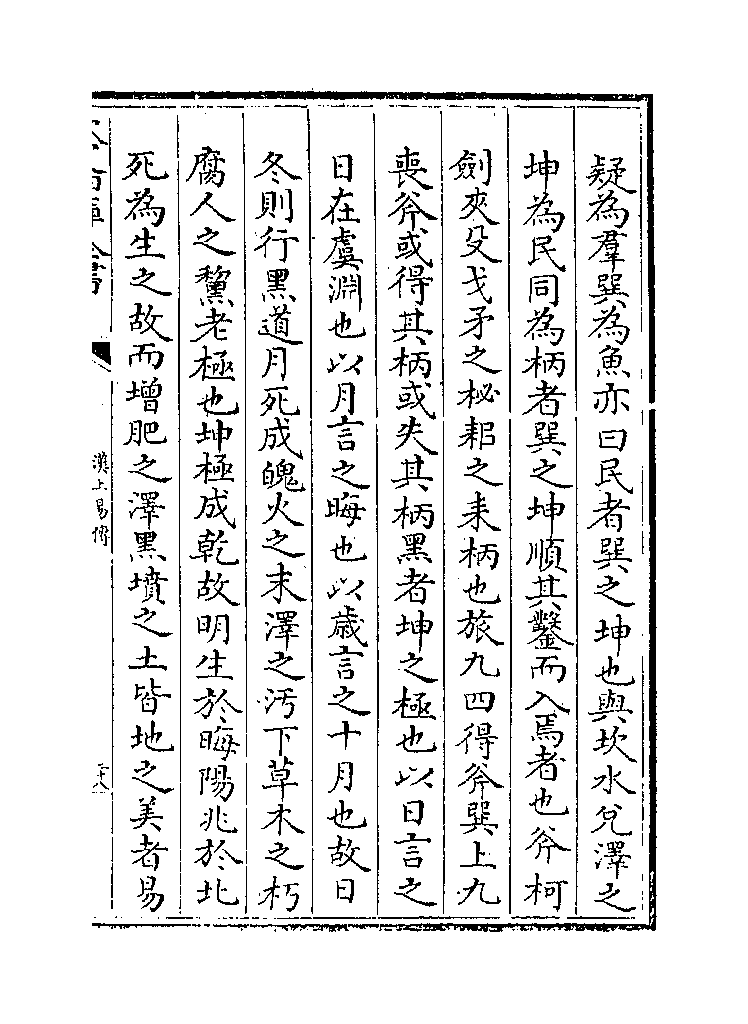 疑為羣巽為魚亦曰民者巽之坤也與坎水兊澤之
坤為民同為柄者巽之坤順其鑿而入焉者也斧柯
劍夾殳戈矛之柲耜之耒柄也旅九四得斧巽上九
喪斧或得其柄或失其柄黑者坤之極也以日言之
日在虞淵也以月言之晦也以歳言之十月也故日
冬則行黑道月死成魄火之末澤之汚下草木之朽
腐人之黧老極也坤極成乾故明生於晦陽兆於北
死為生之故而增肥之澤黑墳之土皆地之美者易
漢上易傳